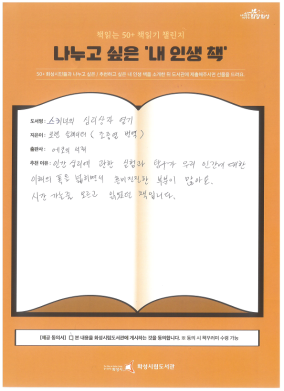 책읽는 50+ 책읽기 챌린지
나누고 싶은 '내 인생 책'
50+ 화성시민들과 나누고 싶은 / 추천하고 싶은 내 인생 책을 소개한 뒤 도서관에 제출해주시면 선물을 드려요.
도서명: 스키너의 심리상자 열기
지은이: 로렌 슬레이터 ( 조증열 번역 )
출판사: 에코의 서재
추천 이유: 인간 심리에 관한 실험과 탐구가 우리 인간에 대한
이해의 폭을 넓히면서 흥미진진한 부분이 많아요.
시간 가는줄 모르고 읽었던 책입니다.
[제공 동의서] 본 내용을 화성시립도서관에 게시하는 것을 동의합니다. ※ 동의 시 책꾸러미 수령 가능
화성시립도서관